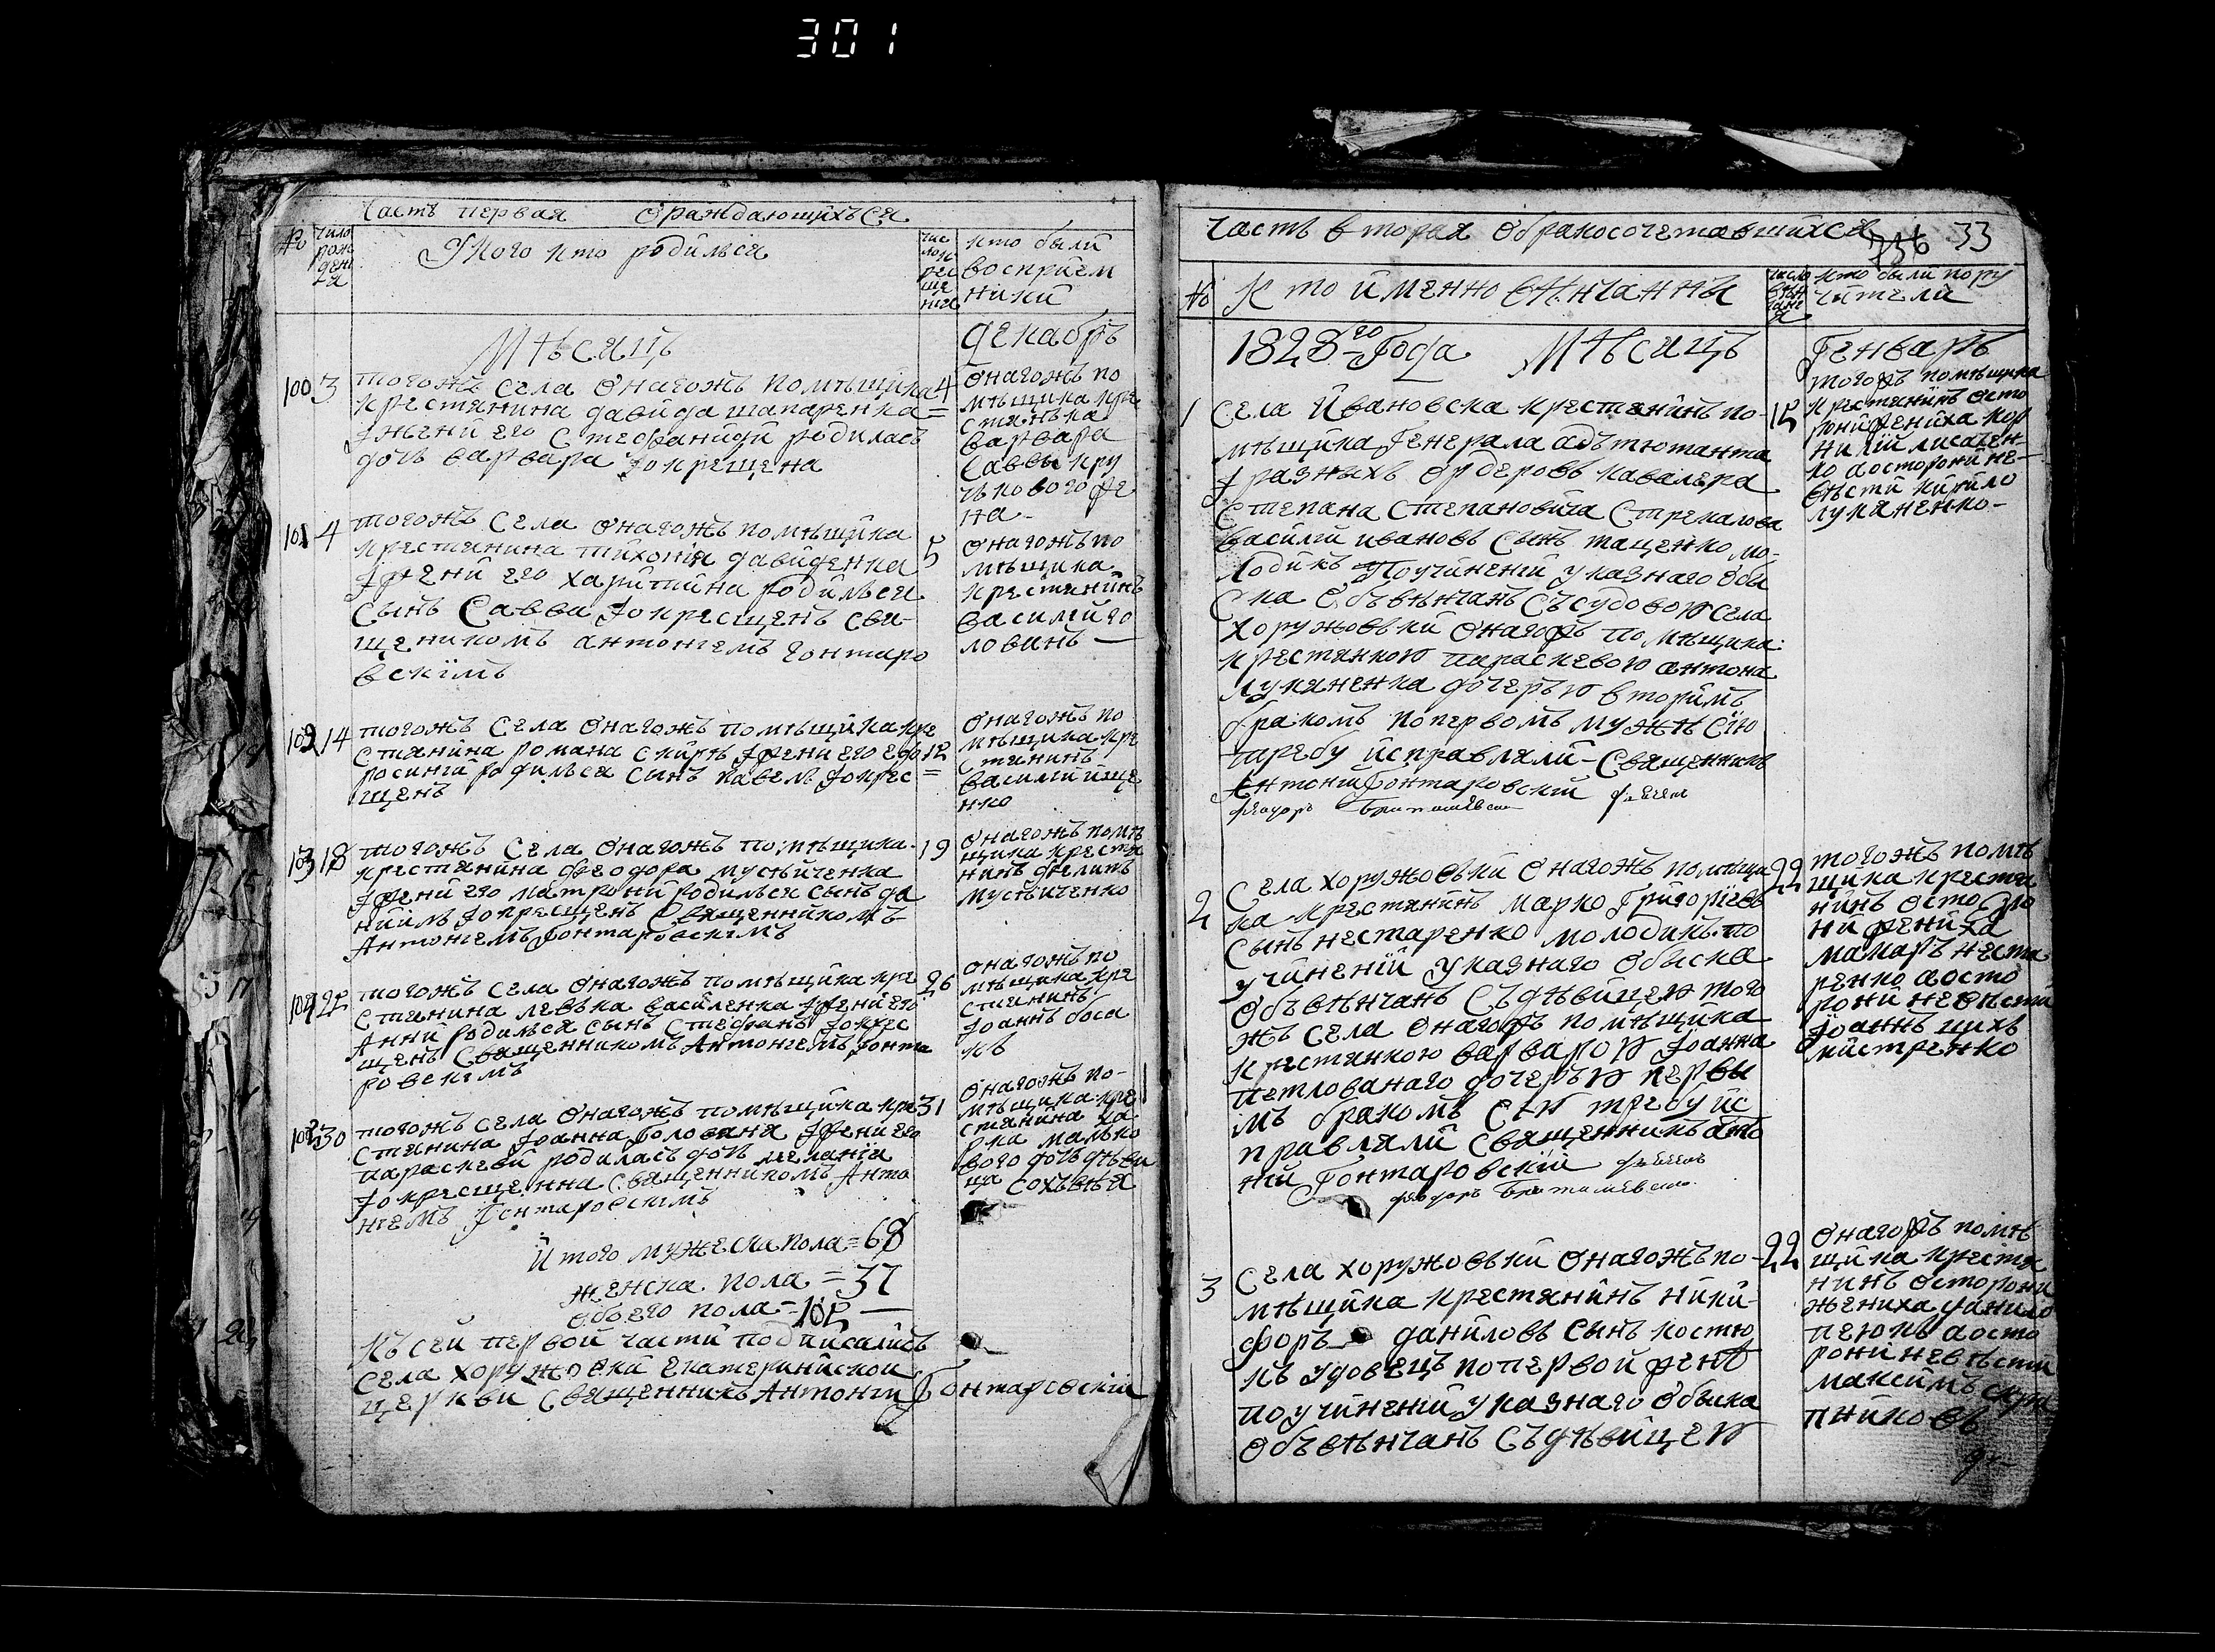 301
Часть первая О раждающихъся
№
число рожденія
У кого кто родился
число крещения
кто были восприемники
Мѣсяцъ
декабрь
100
3
тогожъ села онагожъ помѣщика
крестянина давида шапаренка
Ижени его стефаниди родилась
дочь варвара Iокрещена
4
онагожъ по
мѣщика кре
стянька
варвара
Саввы кру
чькового же
на
101
4
тогожъ села онагожъ помѣщика
крестянина тихонія давиденка
Iжени его харитина родился
сынъ Савва Iокрещенъ свя-
щеникомъ антониемъ гонтаро
вскимъ
5
онагожъ по
мѣщика
крестянинъ
василий го
лованъ
102
14
тогожъ села онагожъ помѣщика кре
стянина романа скирты Iжени его евдо
росинии родился сынъ павелъ Iокре
щенъ
15
онагожъ по
мѣщика кре
стянинъ
василий ище
нко
103
18
тогожъ села онагожъ помѣщика
крестянина феодора мусѣйченка
Iжени его матрони родился сынъ да
ниилъ Iокрещенъ Священникомъ
Антониемъ Гонтаровскимъ
19
онагожъ помѣ
щика крестя
нинъ филипъ
мусѣиченко
104
25
тогожъ села онагожъ помѣщика кре
стянина левька василенка Iжени его
Анни родился сынъ Стефанъ Iокре
щенъ Священникомъ Антониемъ Гонта
ровскимъ
26
онагожъ по
мѣщика кре
стянинъ
Iоаннъ боса
къ
105
30
тогожъ села онагожъ помѣщика кре
стянина Iоанна Голованя Iжени его
параскеви родилась дочь меланія
Iокрещенна Священникомъ Анто
ниемъ Гонтаровскимъ
31
онагожъ по-
мѣщика кре
стянина ма
рка малько
вого дочь дѣви
ца
Итого мужеска пола = 68
женска пола = 37
обоего пола = 105
Къ сей первой части подписались
села хоружовки екатерининской
церкви Священникъ Антоний Гонтаровский
Часть вторая О бракосочетавшихся
736 33
№
Кто именно вѣнчанны
число вѣнчания
кто были пору
чители
1828го Года Мѣсяцъ
Генварь
1
Села Ивановска крестянинъ по-
мѣщика Генерала адъютанта
I разныхъ ордеровъ кавалера
Степана Степановича Стрекалова
Василий ивановъ сынъ тащенко мо-
лодикъ Поучинении указнаго обы
ска Объвѣнчанъ съ удовою села
хоружовки онагожъ помѣщика
крестянкою параскевою антона
лукяненка дочерью вторимъ
бракомъ по первомъ мужѣ Сию
требу исправляли Священникъ
Антоний Гонтаровский
15
тогожъ помѣщика
крестянинъ осто
рони жениха кор
нилий
а осторони не-
вѣсти кирило
лукяненко
2
Села хоружовки онагожъ помѣщи
ка крестянинъ марко Григориевъ
сынъ нестаренко молодикъ по
учинении указнаго обыска
Объвѣнчанъ съ дѣвицею того
жъ села онагожъ помѣщика
крестянкою варварою Iоанна
петлованаго дочерью первы
мъ бракомъ Сию требу ис
правляли Священникъ анто
ний Гонтаровский
22
тогожъ помѣ
щика крестя
нинъ осторо
ни жениха
макаръ неста
ренко аосто
рони невѣсти
Iоаннъ
3
Села хоружовки онагожъ по-
мѣщика крестянинъ ники-
форъ даниловъ сынъ костю
къ удовецъ по первой женѣ
по учинении указнаго обыска
Объвѣнчанъ съ дѣвицею
22
онагожъ помѣ
щика крестя
нинъ осторони
жениха данило
аосто
рони невѣсти
максимъ